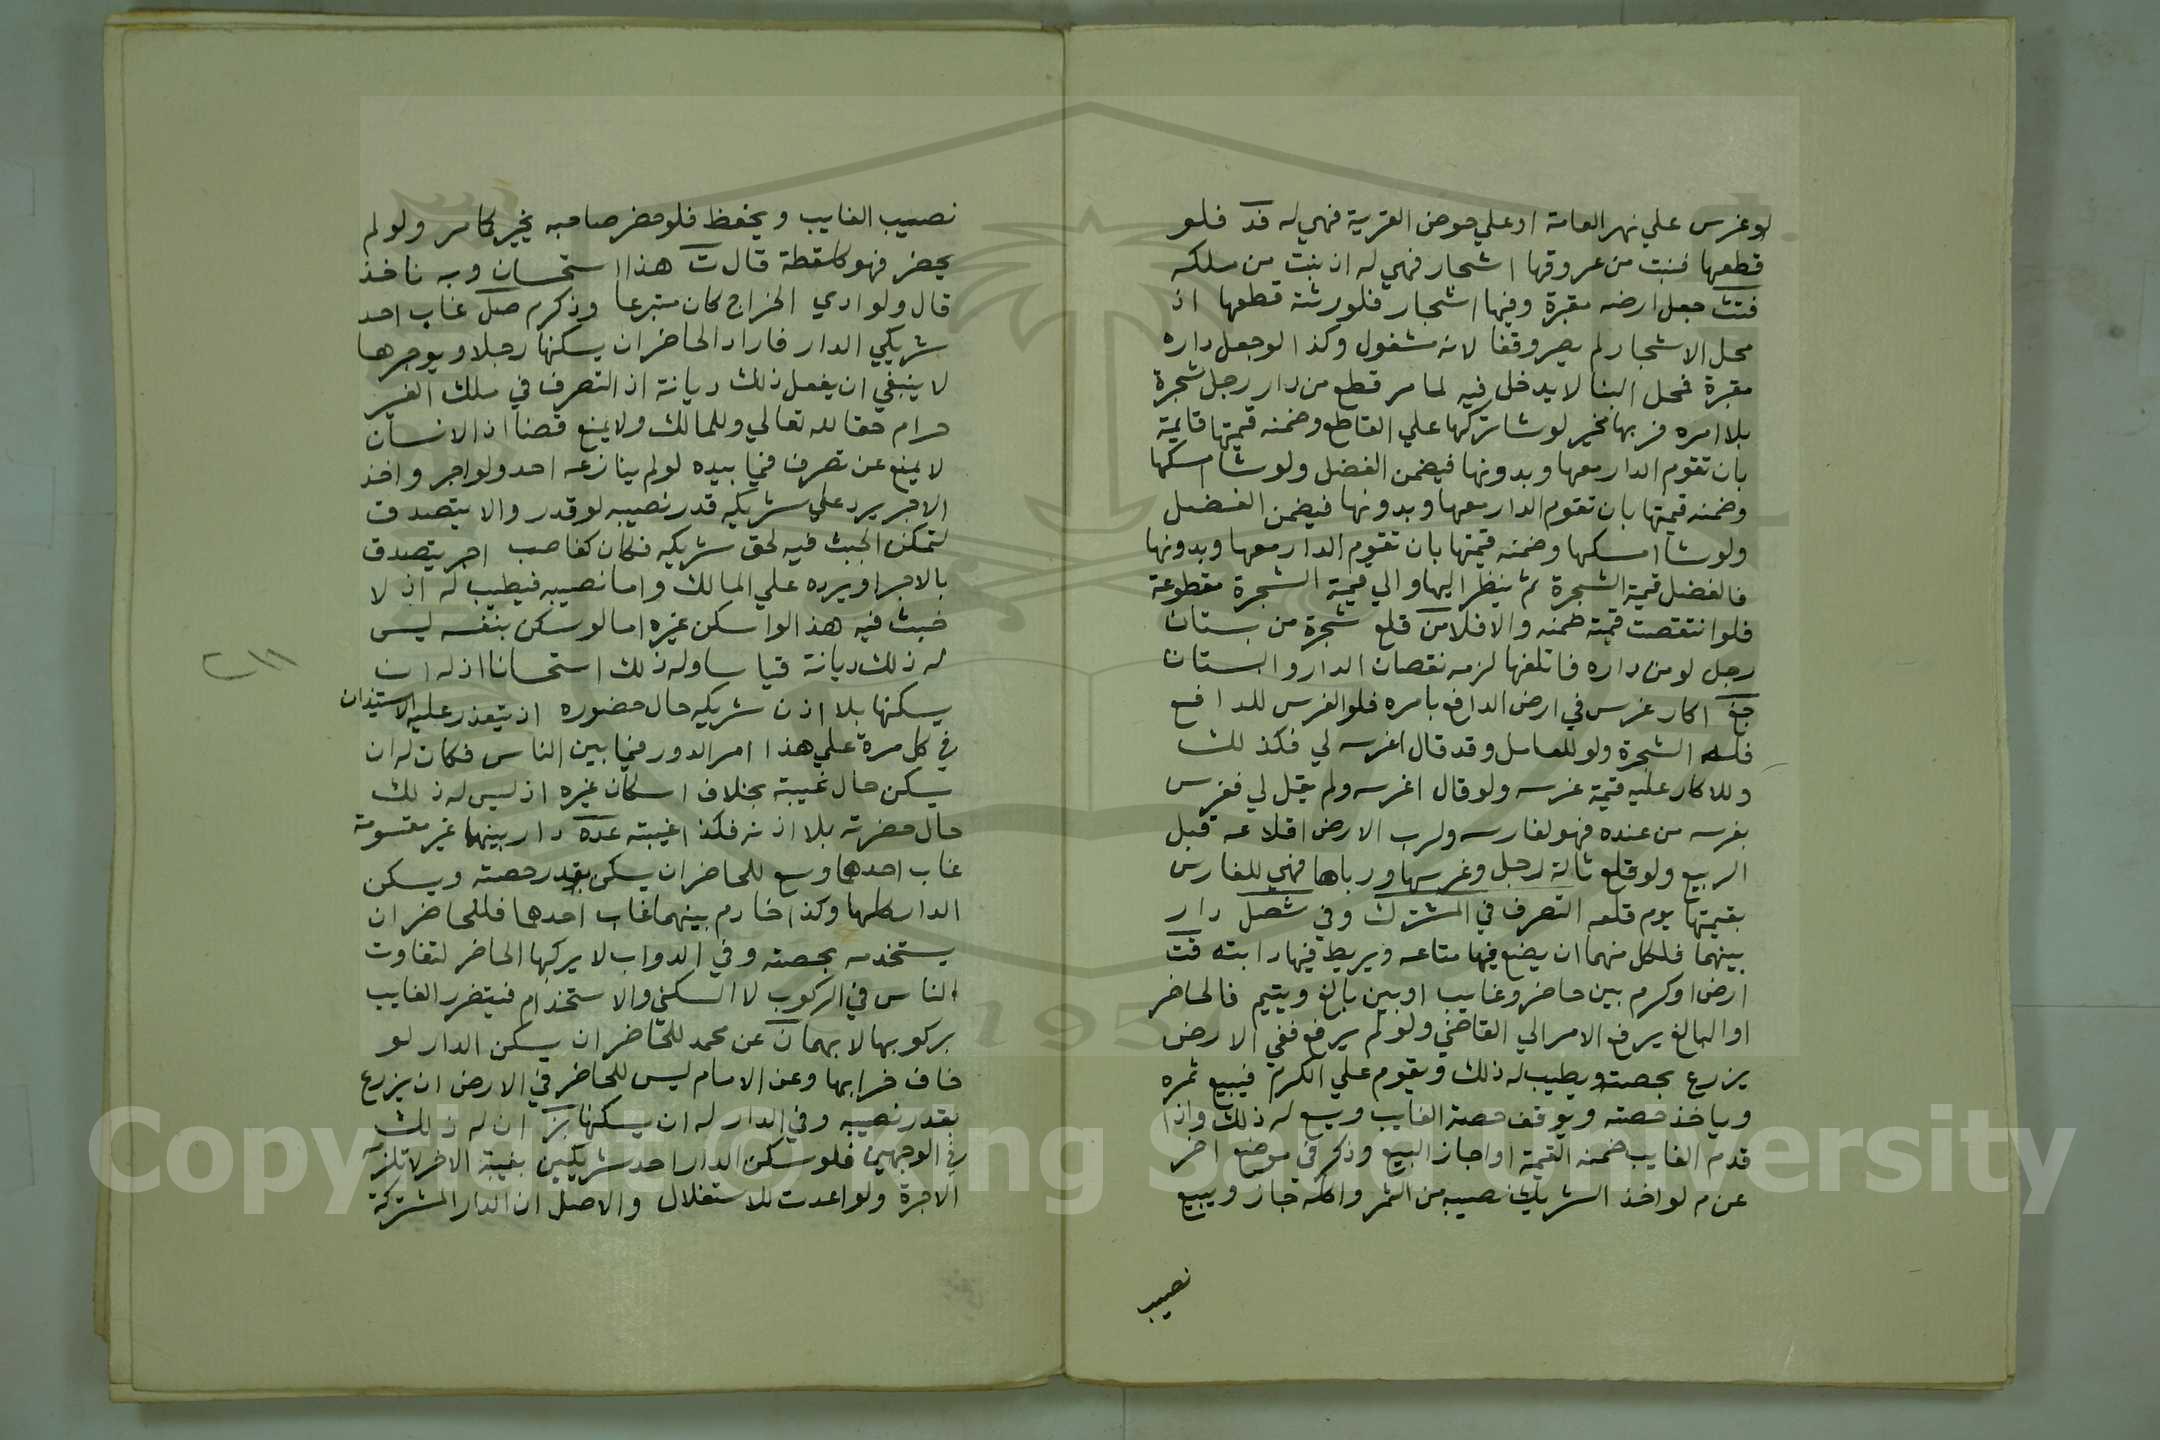 لو غرس علي نهر العامة او علي حوض القرية فهي له فد فلو
قطعها فنبت من عروقها اشجار فهي له ان نبت من ملكه
فتث جعل ارضه مقبرة وفيها اشجار فلورثته قطعها اذ
محل الاشجار لم يصر وقفا لانه مشغول وكذا لو جعل داره
مقبرة فمحل البنا لا يدخل فيه لما مر قطع من دار رجل شجرة
بلا امره فربها مخير لو شا تركها علي القاطع وضمنه قيمتها قايمة
بان تقوم الدار معها وبدونها فيضمن الفضل ولو شا امسكها
وضمنه قيمتها بان تقوم الدار معها وبدونها فيضمن الفضل
ولو شا امسكها وضمنه قيمتها بان تقوم الدار معها وبدونها
فالفضل قيمة الشجرة ثم ينظر اليها والي قيمة الشجرة مقطوعة
فلو انتقصت قيمته ضمنه والا فلا من قلع شجرة من بستان
رجل لو من داره فاتلفها لزمه نقصان الدار والبستان
جغ اكار غرس في ارض الدافع بامره فلو الغرس للدافع
فله الشجرة ولو للعامل وقد قال اغرسه لي فكذلك
وللاكار عليه قيمة غرسه ولو قال اغرسه ولم يقل لي فغرس
بغرسه من عنده فهو لغارسه ولرب الارض اقلاعه قبل
الربيع ولو قلع تالة لرجل وغرسها ورباها فهي للغارس
بقيمتها يوم قلعه التصرف في المشترك وفي شصل دار
بينهما فلكل منهما ان يضع فيها متاعه ويربط فيها دابته قت
ارض او كرم بين حاضر وغايب او بين بالغ ويتيم فالحاضر
او البالغ يرفع الامر الي القاضي ولو لم يرفع ففي الارض
يزرع بحصته ويطيب له ذلك ويقوم علي الكرم فيبيع ثمره
وياخذ حصته ويوقف حصة الغايب ويسع له ذلك واذا
قدم الغايب ضمنه القيمة او اجاز البيع وذكر في موضع اخر
عن م لو اخذ الشريك نصيبه من الثمر واكله جاز ويبيع
نصيب
نصيب الغايب ويحفظ فلو حضر صاحبه يخير كما مر ولو لم
يحضر فهو كلقطة قال ت هذا استحسان وبه ناخذ
قال ولو ادي الخراج كان متبرعا وذكر م صل غاب احد
شريكي الدار فاراد الحاضر ان يسكنها رجلا ويوجرها
لا ينبغي ان يفعل ذلك ديانة اذ التصرف في ملك الغير
حرام حقا لله تعالي وللمالك ولا يمنع قضا اذ الانسان
لا يمنع عن تصرف فيما بيده لو لم ينازعه احد ولو اجر واخذ
الاجر يرد علي شريكه قدر نصيبه لو قدر والا يتصدق
لتمكن الخبث فيه لحق شريكه فكان كغاصب اجر يتصدق
بالاجر او يرده علي المالك واما نصيبه فيطيب له اذ لا
خبث فيه هذا لو اسكن غيره اما لو سكن بنفسه ليس
له ذلك ديانة قياسا وله ذلك استحسانا اذ له ان
يسكنها بلا اذن شريكه حال حضوره اذ يتعذر عليه الاستيذان
في كل مرة علي هذا امر الدور فيما بين الناس فكان له ان
يسكن حال غيبته بخلاف اسكان غيره اذ ليس له ذلك
حال حضرته بلا اذنه فكذا غيبته عده دار بينهما غير مقسومة
غاب احدهما وسع للحاضر ان يسكن بقدر حصته ويسكن
الدار كلها وكذا خادم بينهما غاب احدهما فللحاضر ان
يستخدمه بحصته وفي الدواب لا يركبها الحاضر لتفاوت
الناس في الركوب لا السكني والاستخدام فيتضرر الغايب
بركوبها لا بهما ن عن محمد للحاضر ان يسكن الدار لو
خاف خرابها وعن الامام ليس للحاضر في الارض ان يزرع
بقدر نصيبه وفي الدار له ان يسكنها بز ان له ذلك
في الوجهين فلو سكن الدار احد شريكين بغيبة الاخر لا تلزمه
الاجرة ولو اعدت للاستغلال والاصل ان الدار المشتركة
Copyright © King Saud University
1957